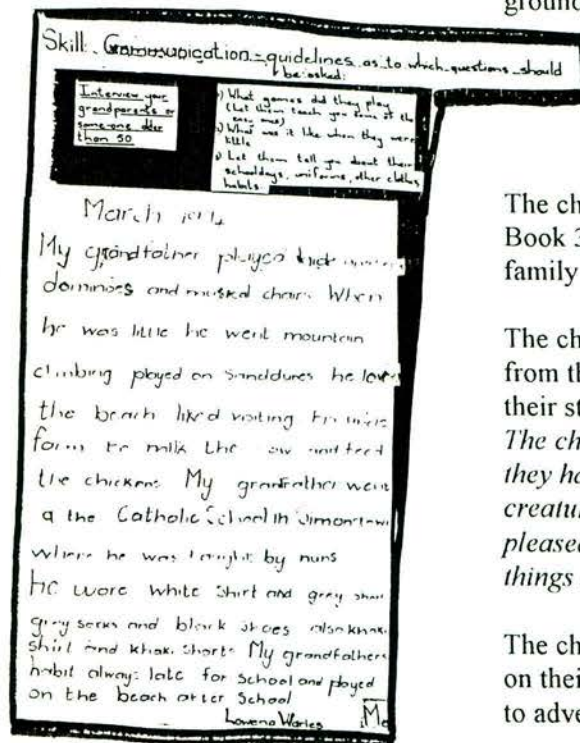 ground
Skill: Communication - guidelines as to which questions should
be asked:
Interview your
grandparents or
someone older
than 50
1) What games did they play
(Let them teach you some of the
easy ones)
2) What was it like when they were
little
3) Let them tell you about their
schooldays, uniforms, other clothes
habits.
March
My grandfather played hide
dominoes and musical chairs When
he was little he went mountain
climbing played on sanddunes he loved
the beach liked visiting
farm to milk the cow and feed
the chickens My grandfather went
a the Catholic School in Simonstown
where he was taught by nuns
he wore white shirt and grey short
grey socks and black shoes also khaki
shirt and khaki shorts My grandfathers
habit always late for school and played
on the beach after school
Lovena
Me
The ch
Book 3
family
The ch
from th
their st
The ch
they ha
creatu
pleased
things
The ch
on thei
to adve